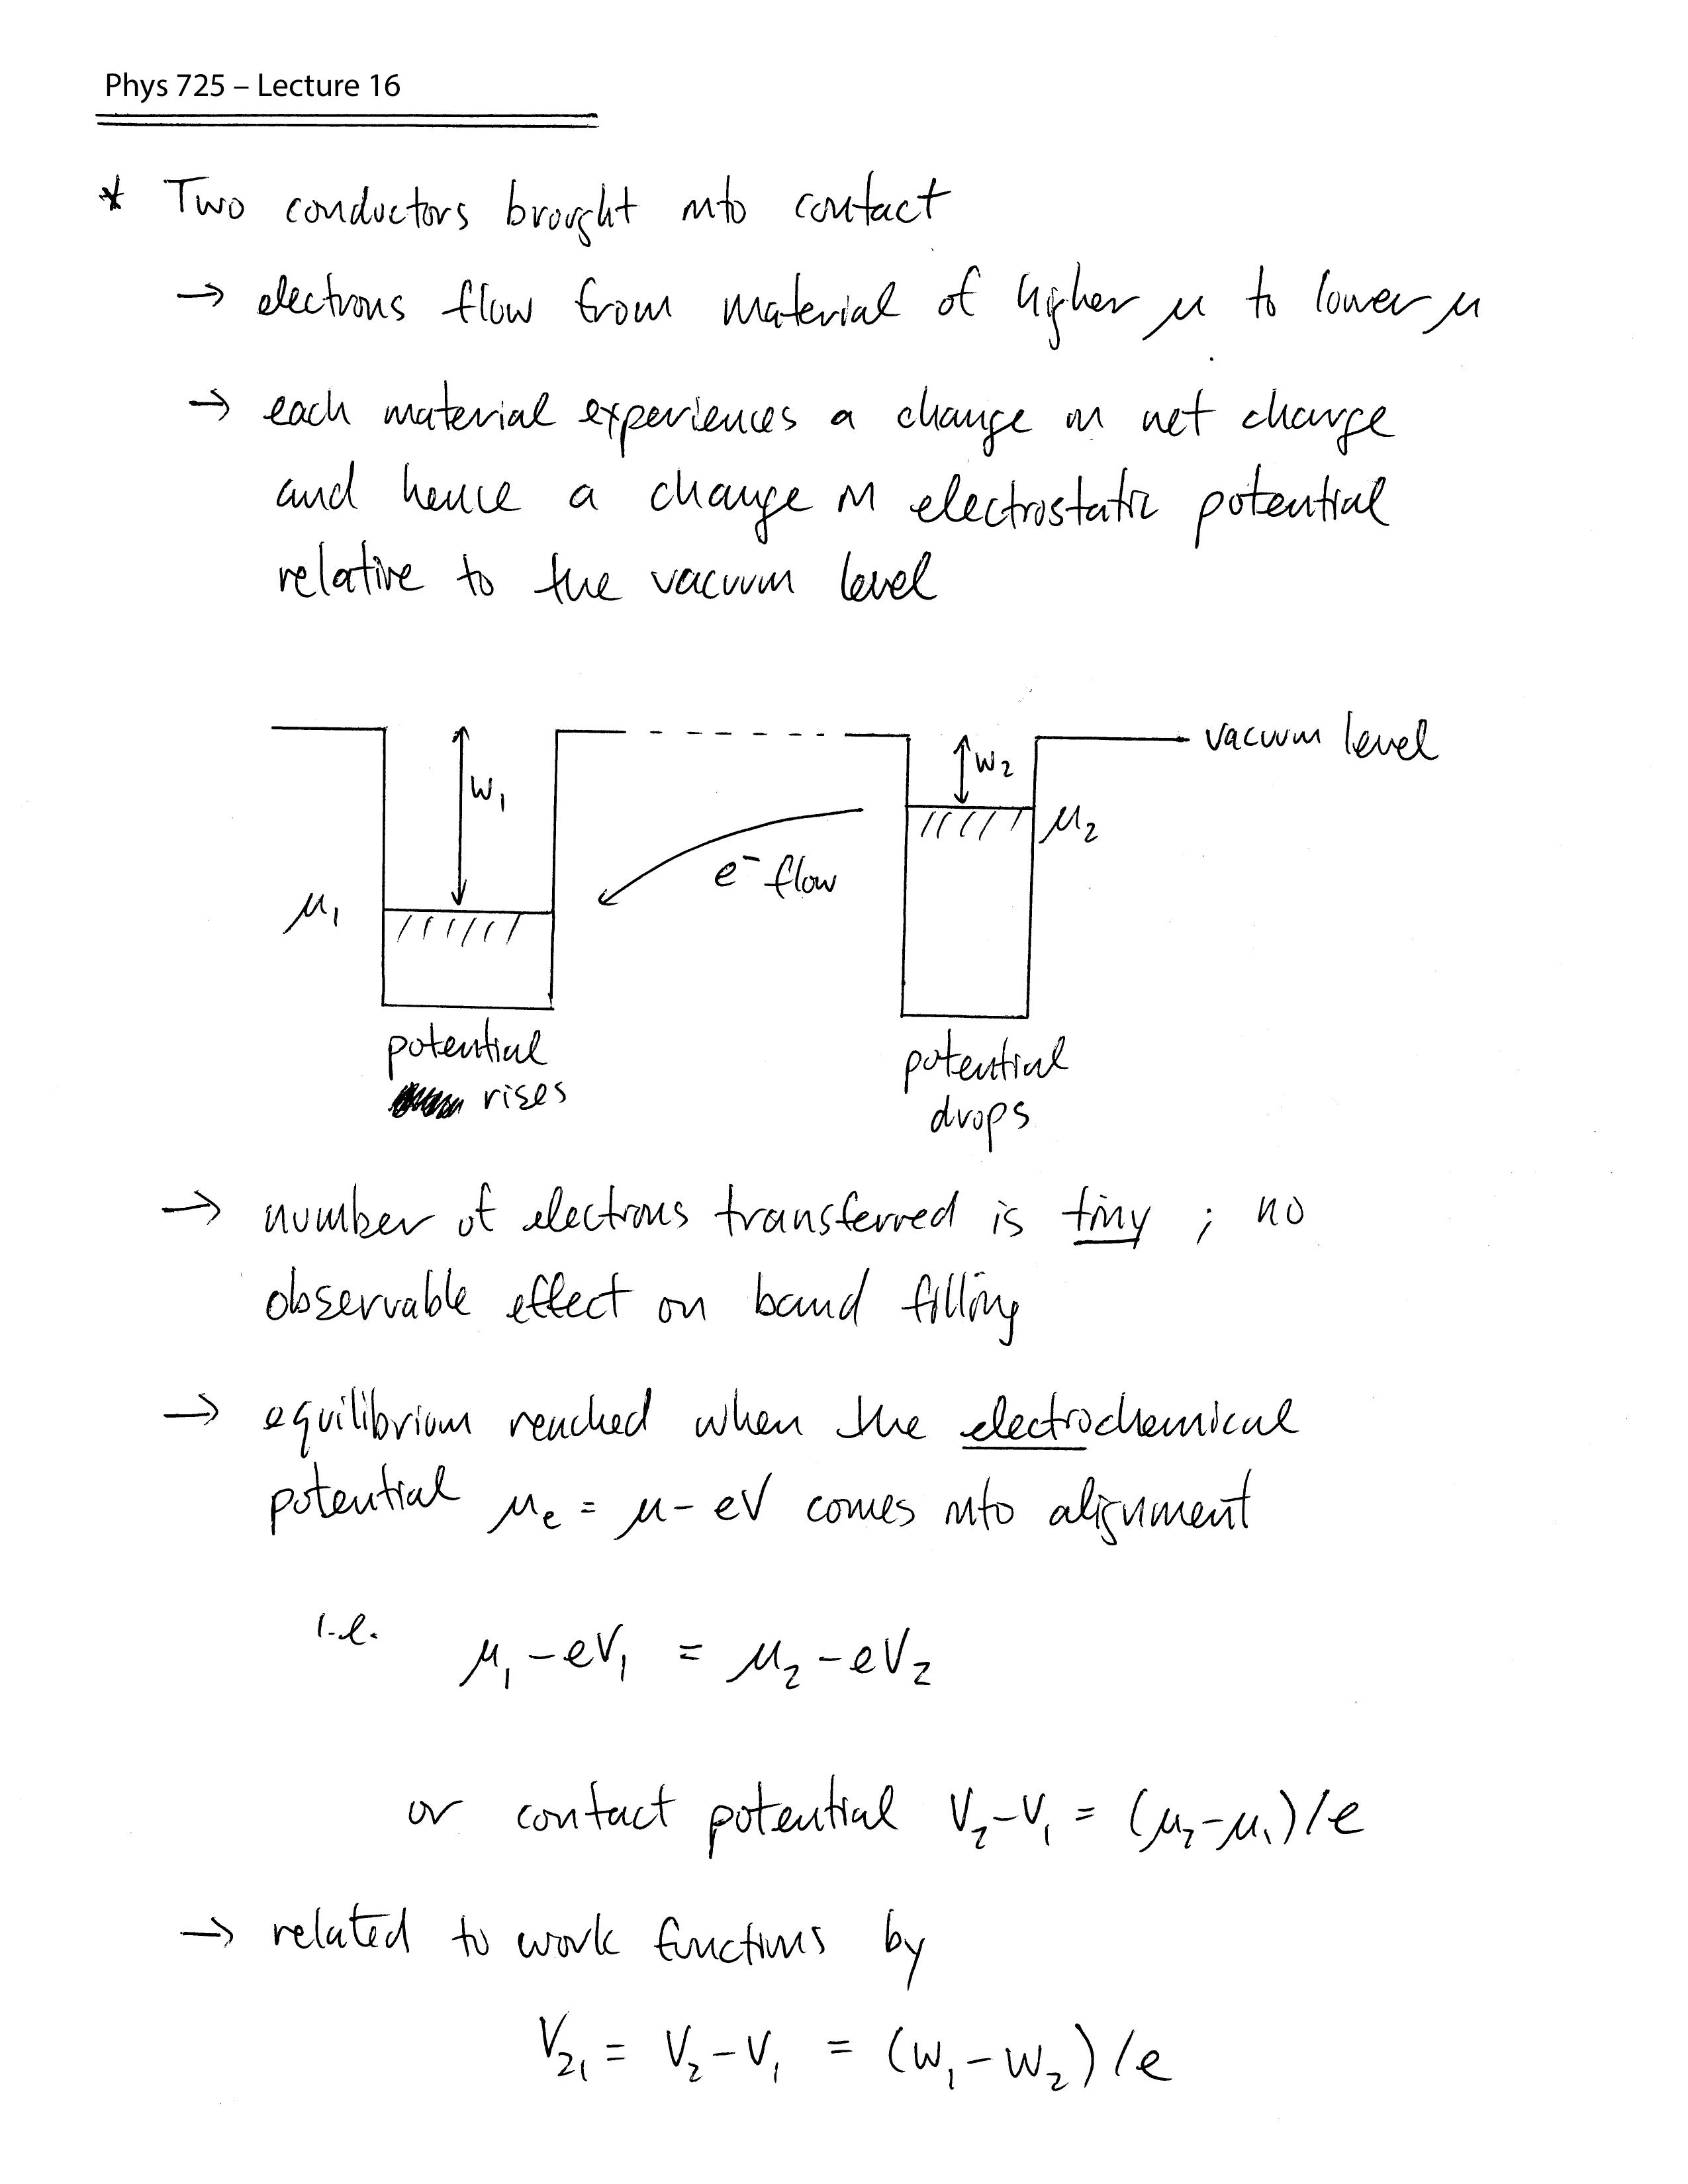 Phys 725 – Lecture 16
* Two conductors brought into contact
→ electrons flow from material of higher μ to lower μ
→ each material experiences a change in net charge
and hence a change in electrostatic potential
relative to the vacuum level
vacuum level
W₁
W₂
μ₂
e⁻ flow
μ₁
potential
rises
potential
drops
→ number of electrons transferred is tiny ; no
observable effect on band filling
→ equilibrium reached when the electrochemical
potential μₑ = μ - eV comes into alignment
i.e. μ₁ - eV₁ = μ₂ - eV₂
or contact potential V₂-V₁ = (μ₂-μ₁)/e
→ related to work functions by
V₂₁ = V₂-V₁ = (W₁-W₂)/e